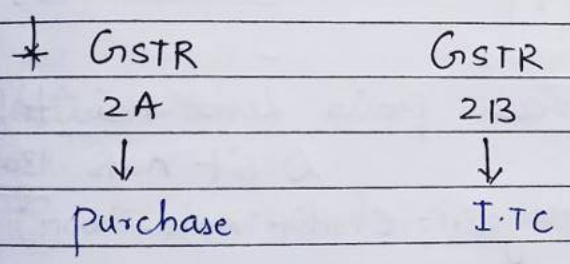 * GSTR GSTR
2A 2B
↓ ↓
Purchase I.TC